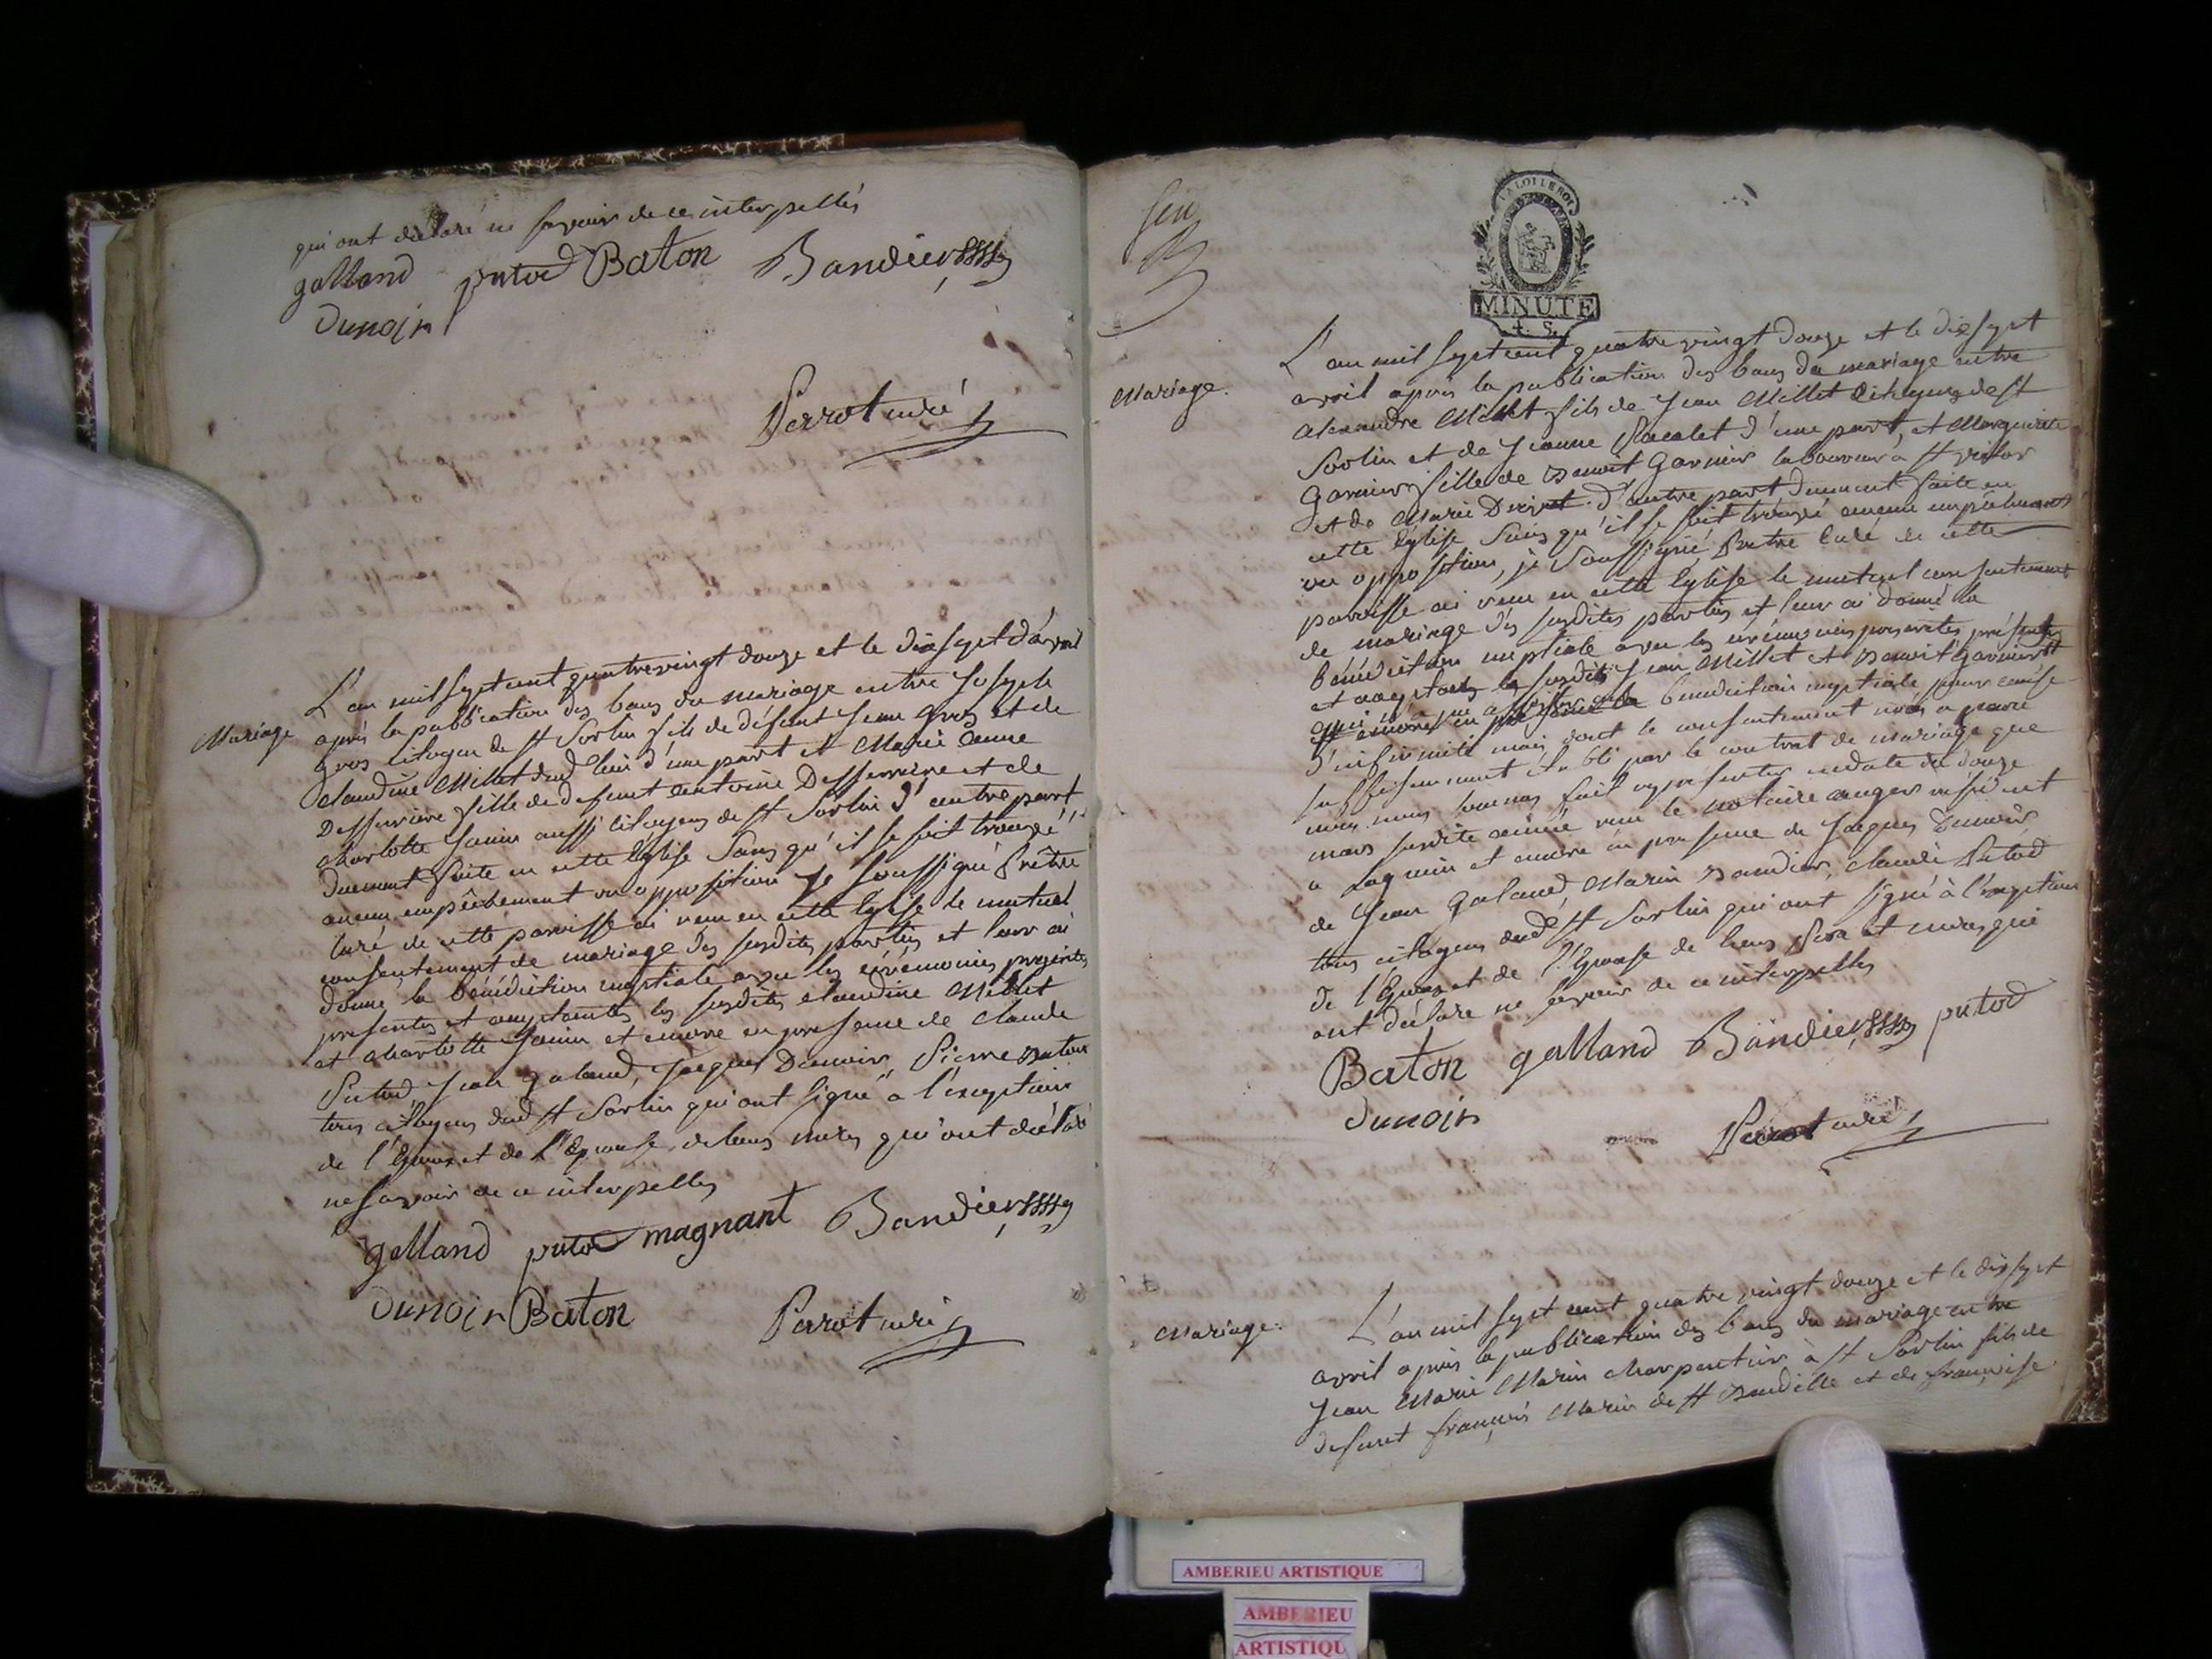 qui ont déclaré ne savoir de ce interpellés
galland putod Baton Bandier
Dunoir
Perrot curé
Mariage
L'an mil sept cent quatre vingt douze et le dix sept d'avril
après la publication des bans du mariage entre Joseph
gros citoyen de st Sorlin fils de défunt Jean gros et de
claudine Millet dud lieu d'une part et Marie anne
Desserriere fille de defunt antoine Desserriere et de
charlotte Janin aussi citoyens de st Sorlin d'autre part
duement faite en cette Eglise sans qu'il se soit trouvé
aucun empêchement ou opposition je soussigné Prêtre
curé de cette paroisse ai reçu en cette Eglise le mutuel
consentement de mariage des susdites parties et leur ai
donné la bénédiction nuptiale avec les cérémonies prescrites
presentes et acceptantes les susdites claudine Millet
et charlotte Janin et encore en presence de claude
Putod, Jean galand, jacques Dunoir, Pierre
tous citoyens dud st Sorlin qui ont signé à l'exception
de l'Epoux et de l'Epouse, de leurs meres qui ont déclaré
ne savoir de ce interpellés
galland putod magnant Bandier
Dunoir Baton Perrot curé
LA LOI LE ROI
MINUTE
4. S.
Mariage.
L'an mil sept cent quatre vingt douze et le dix sept
avril après la publication des bans du mariage entre
alexandre Millet fils de Jean Millet citoyens de st
Sorlin et de Jeanne d'une part, et Marguerite
Garnier fille de Benoit Garnier laboureur à st
et de Marie d'autre part duement faite en
cette Eglise sans qu'il se soit trouvé aucun empêchement
ou opposition, je soussigné Prêtre Curé de cette
paroisse ai reçu en cette Eglise le mutuel consentement
de mariage des susdites parties et leur ai donné la
bénédiction nuptiale avec les cérémonies prescrites présents
et acceptants les susdits Jean Millet et Benoit Garnier
qui n'a pu assister à la bénédiction nuptiale pour cause
d'infirmité mais dont le consentement nous a paru
suffisamment établi par le contrat de mariage que
nous nous sommes fait representer en date du douze
mars susdite année reçu le notaire auger résident
a Lagnieu et encore en presence de Jacques Dunoir
de Jean Galand, Marin Bandier, claude Putod
tous citoyens dud st Sorlin qui ont signé à l'exception
de l'Epoux et de l'Epouse de leurs pere et meres qui
ont déclaré ne savoir de ce interpellés
Baton galland Bandier putod
Dunoir
Perrot curé
Mariage.
L'an mil sept cent quatre vingt douze et le dix sept
avril après la publication des bans du mariage entre
Jean Marie Marin charpentier à st Sorlin fils de
defunt françois Marin de st et de françoise
AMBERIEU ARTISTIQUE
AMBERIEU
ARTISTIQU